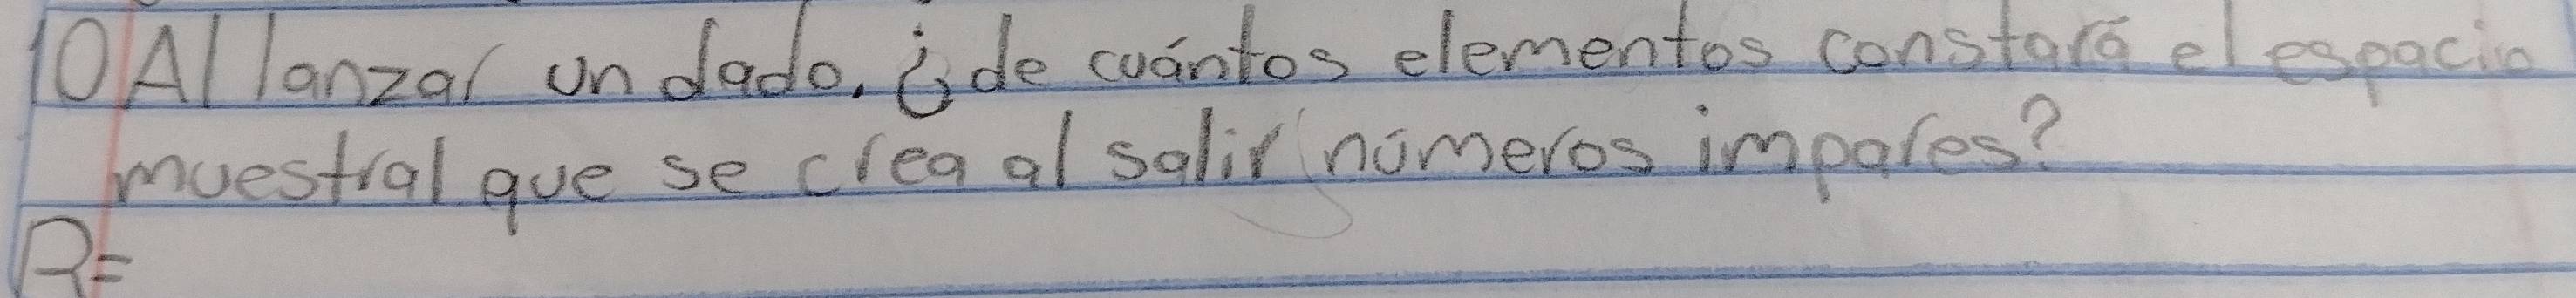 10 Al lanzar un dado, ¿de cuántos elementos constará el espacio
muestral que se crea al salir números impares?
R=